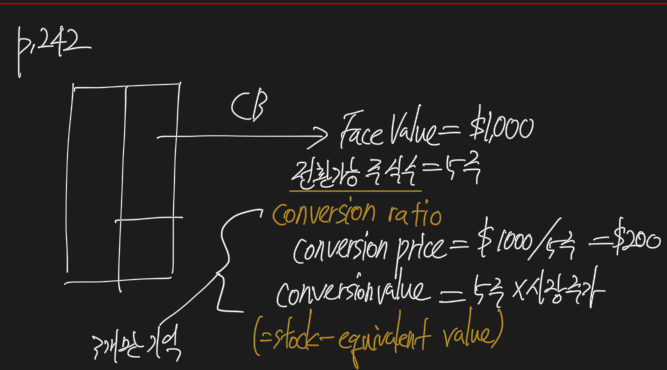 p.242
CB
Face Value = $1,000
전환가능 주식수 = 5주
conversion ratio
conversion price = $1000/5주 = $200
conversion value = 5주 × 시장주가
(=stock-equivalent value)
3개만 기억